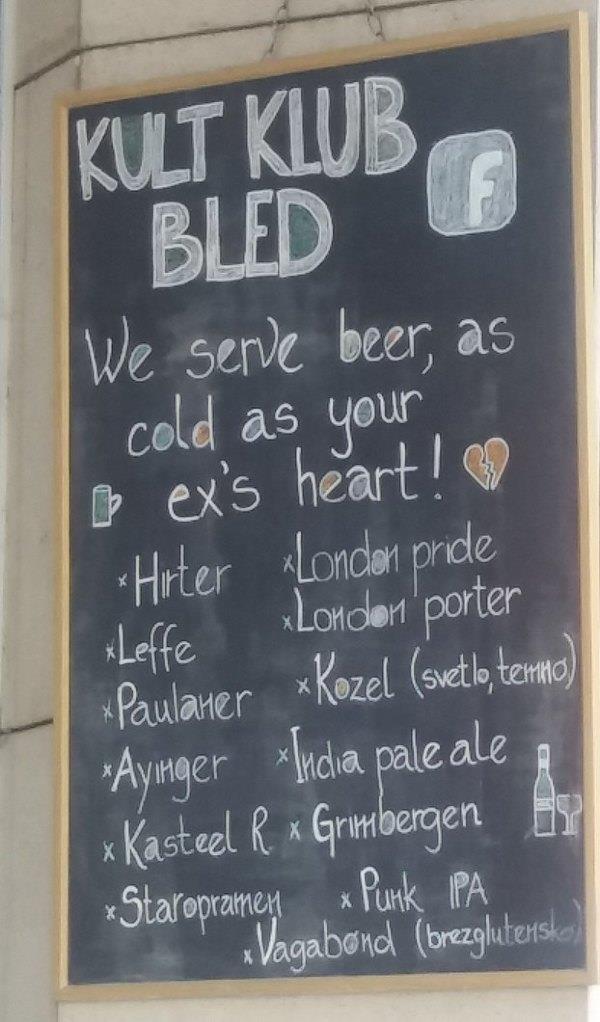 KULT KLUB
BLED
f
We serve beer, as
cold as your
ex's heart!
x Hirter
x London pride
x London porter
x Leffe
x Kozel (svetlo, temno)
x Paulaner
x Ayinger
x India pale ale
x Kasteel R
x Grimbergen
x Staropramen
x Punk IPA
x Vagabond (brezglutensko)